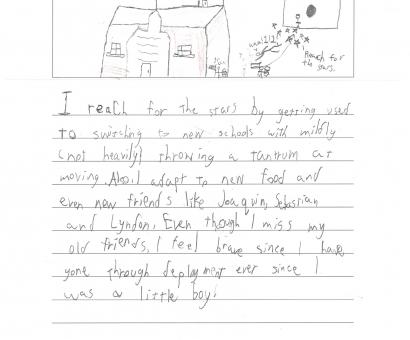 Reach for
the stars.
I reach for the stars by getting used
to switching to new schools with mildly
(not heavily) throwing a tantrum at
moving. Also, I adapt to new food and
even new friends like Joaquin, Sebastian
and Lyndon. Even though I miss my
old friends, I feel brave since I have
gone through deployment ever since I
was a little boy.